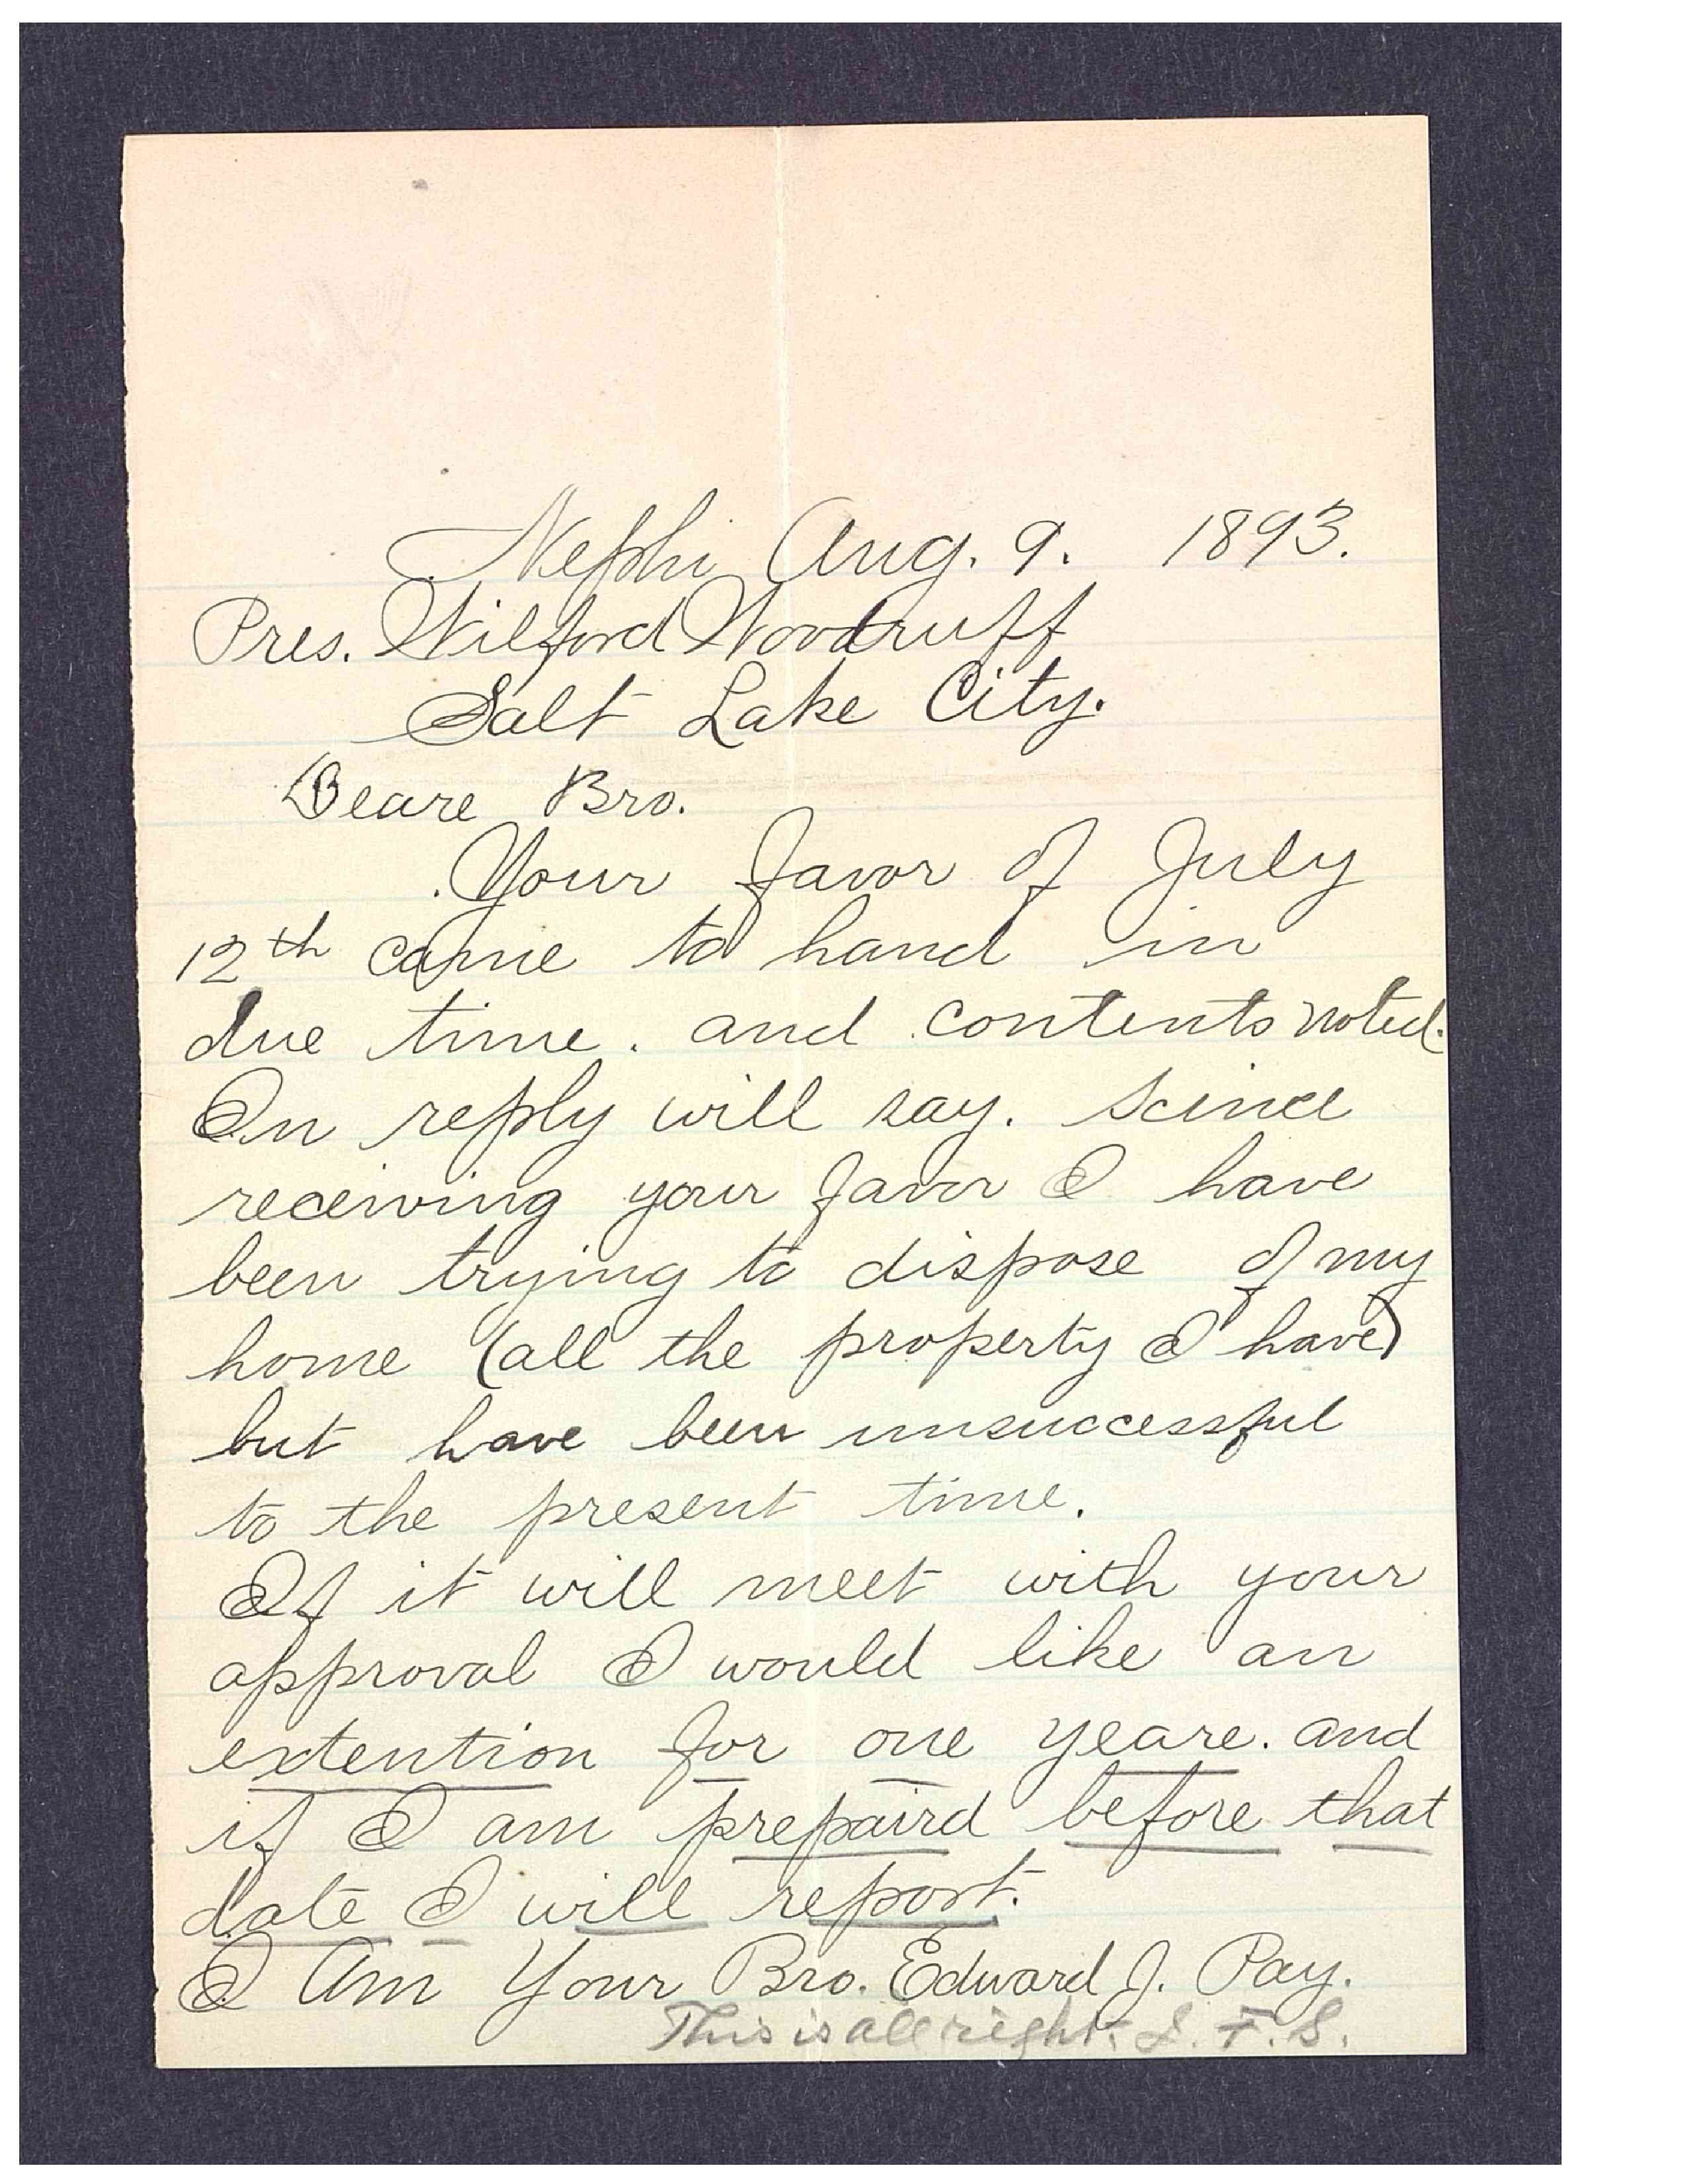 Nephi Aug. 9. 1893.
Pres. Wilford Woodruff
Salt Lake City.
Deare Bro.
Your favor of July
12th came to hand in
due time. and contents noted.
In reply will say. Scince
receiving your favor I have
been trying to dispose of my
home (all the property I have)
but have been unsuccessful
to the present time.
If it will meet with your
approval I would like an
extention for one yeare. and
if I am prepaird before that
date I will report.
I Am Your Bro. Edward J. Pay.
This is all right. J. F. S.